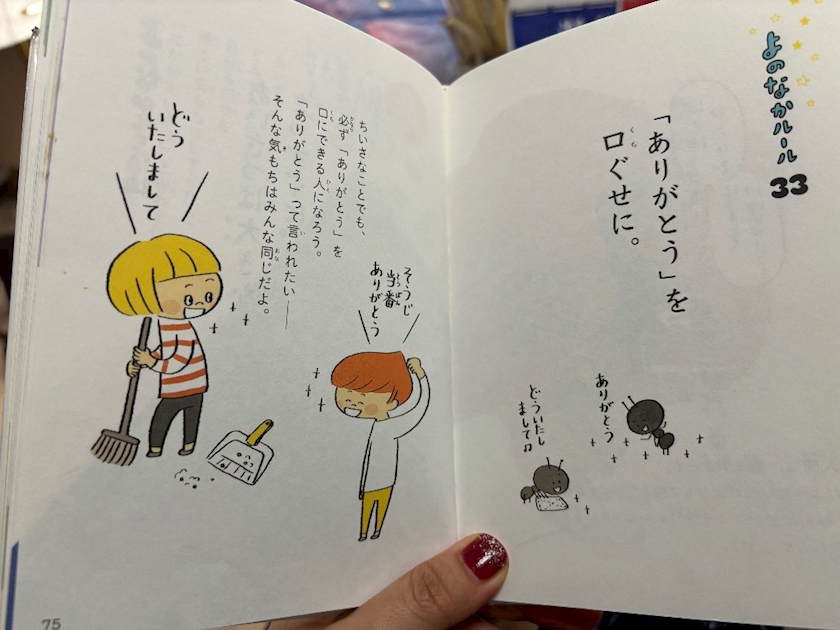 よのなかルール
33
「ありがとう」を
口ぐせに。
くち
ありがとう
どういたし
まして♫
ちいさなことでも、
必ず「ありがとう」を
かなら
口にできる人になろう。
くち
ひと
「ありがとう」って言われたい――
い
そんな気もちはみんな同じだよ。
き
おな
そうじ
当番
とうばん
ありがとう
どう
いたしまして
75